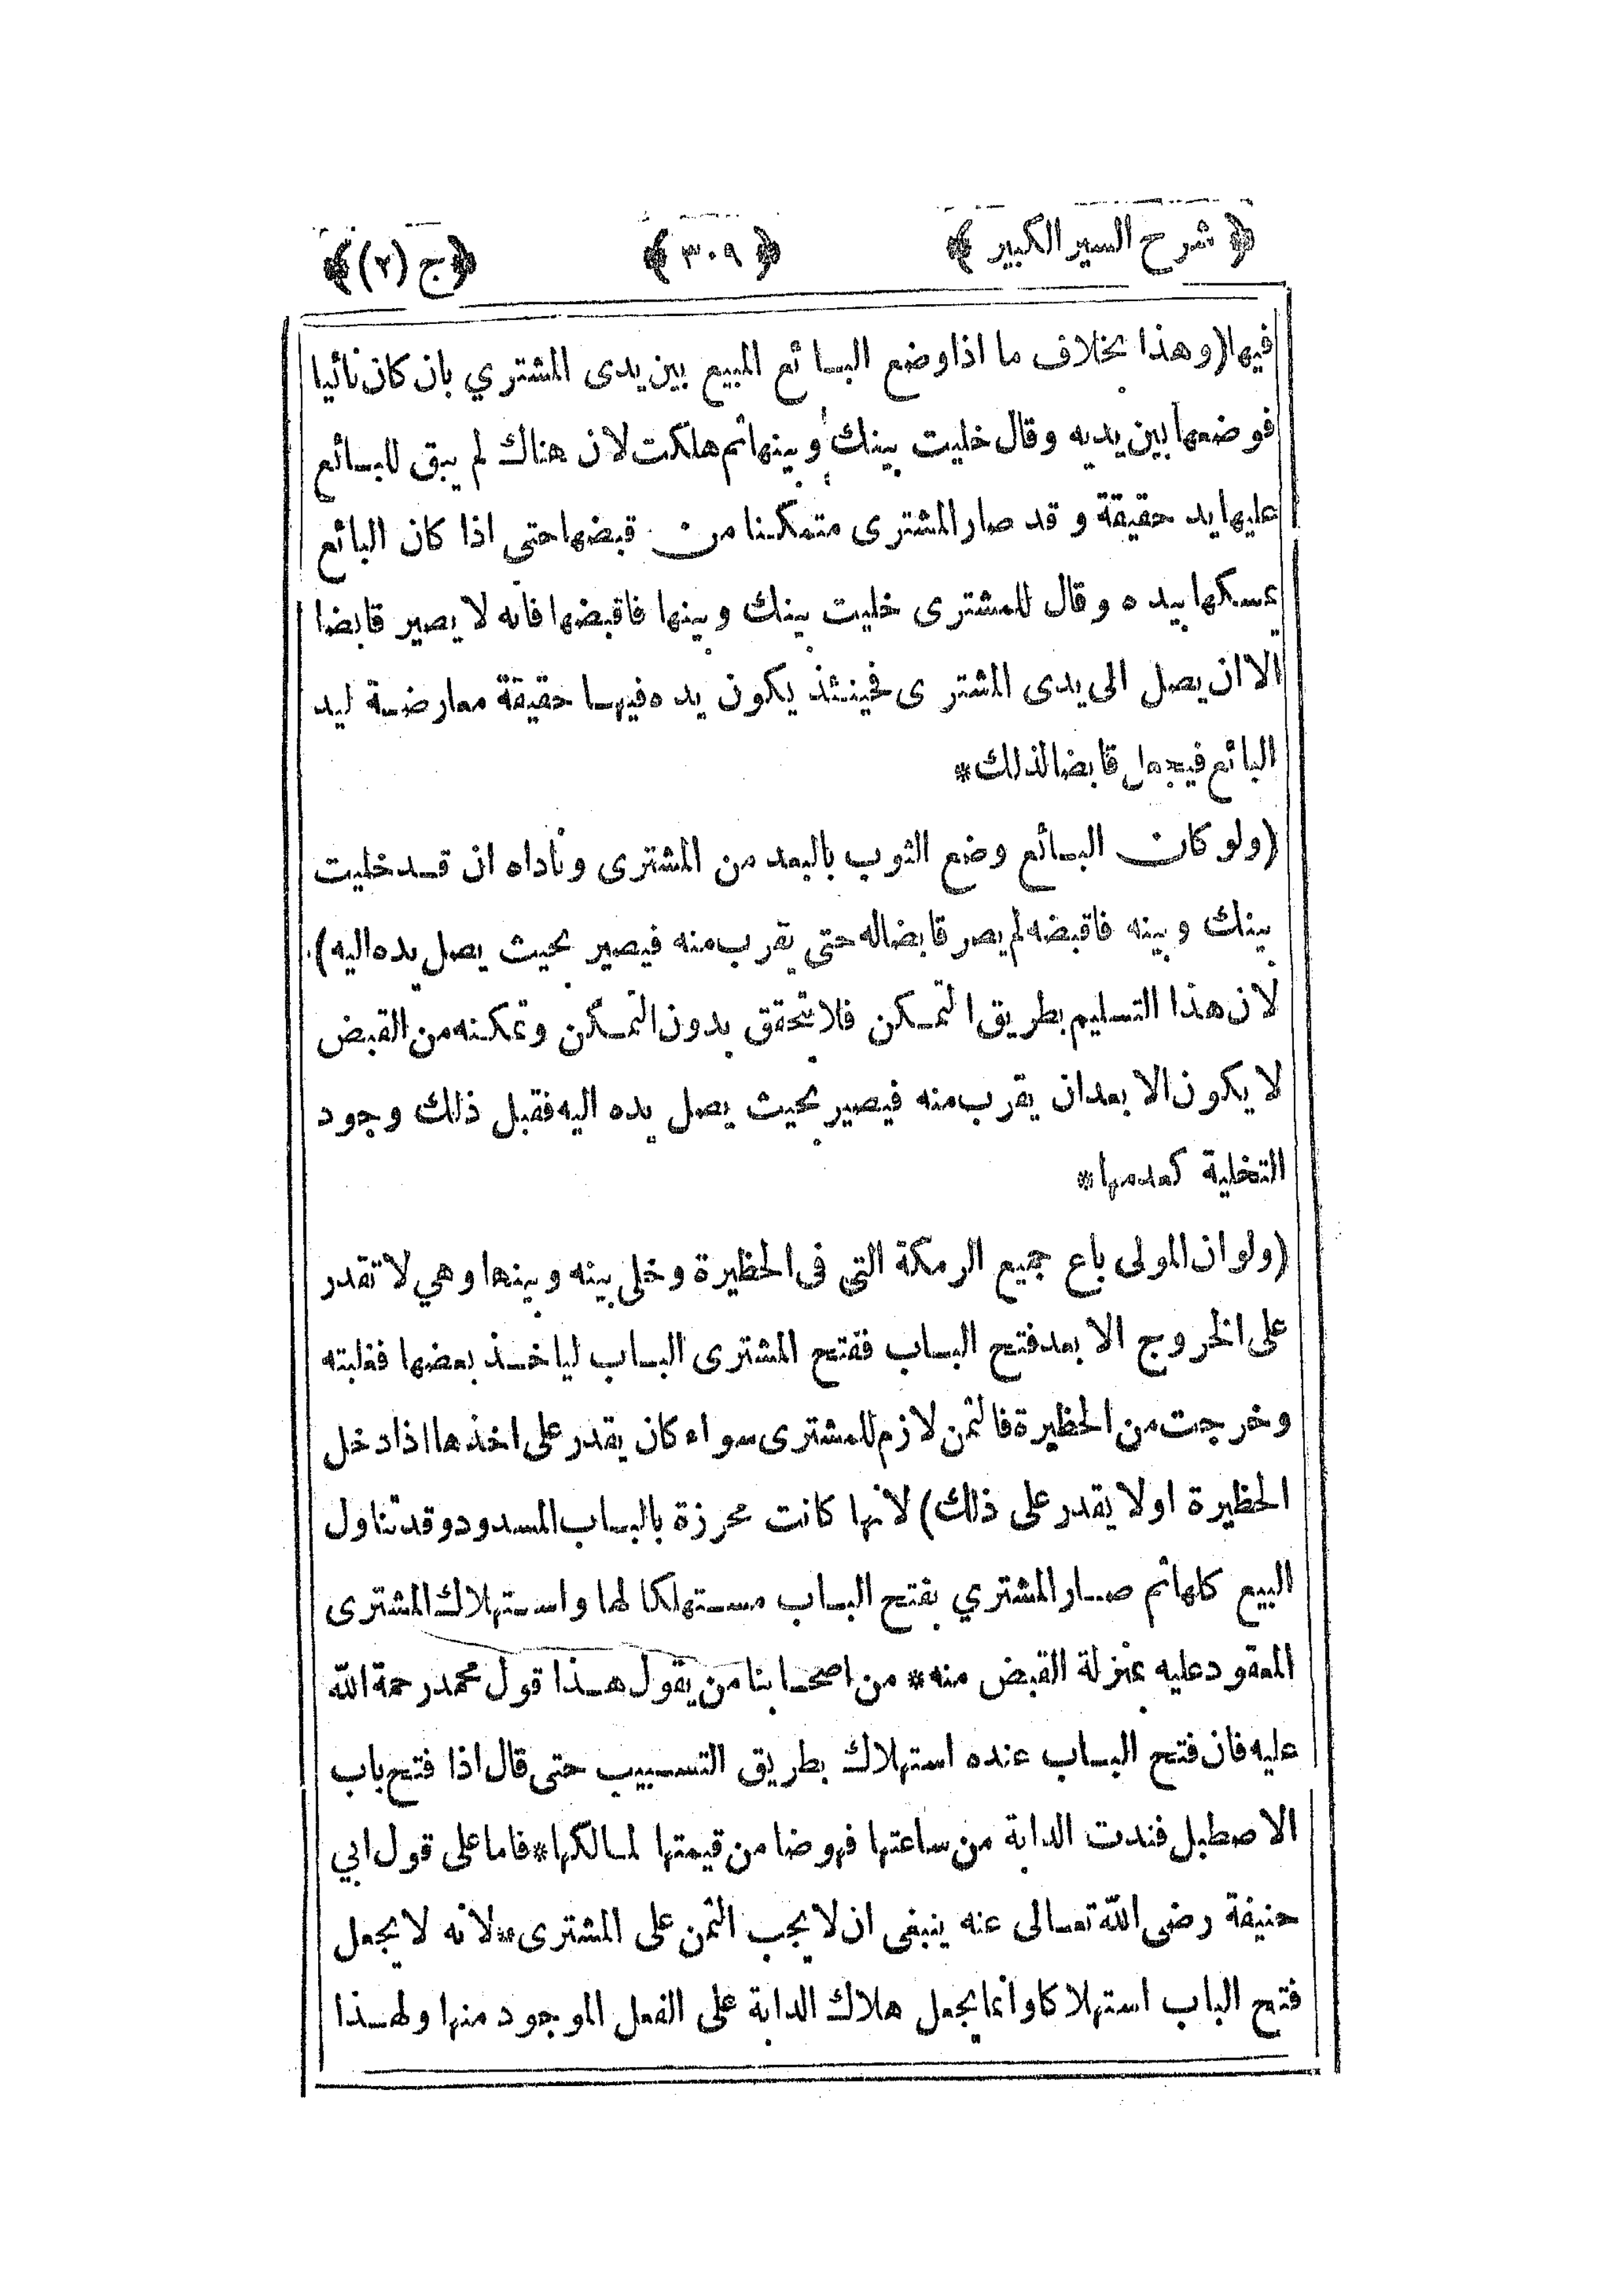 ﴿ شرح السير الكبير ﴾ ﴿ ٣٠٩ ﴾ ﴿ ج (٢) ﴾
فيها (وهذا بخلاف ما اذا وضع البائع المبيع بين يدى المشتري بان كان نائيا
فوضعها بين يديه وقال خليت بينك وبينها ثم هلكت لان هناك لم يبق للبائع
عليها يد حقيقة وقد صار المشترى متمكنا من قبضها حتى اذا كان البائع
يمسكها بيده وقال للمشترى خليت بينك وبينها فاقبضها فانه لا يصير قابضا
الا ان يصل الى يدى المشترى فحينئذ يكون يده فيها حقيقة معارضة ليد
البائع فيجعل قابضا لذلك *
(ولو كان البائع وضع الثوب بالبعد من المشترى وناداه ان قد خليت
بينك وبينه فاقبضه لم يصر قابضا له حتى يقرب منه فيصير بحيث يصل يده اليه)
لان هذا التسليم بطريق التمكن فلا يتحقق بدون التمكن وتمكنه من القبض
لا يكون الا بعد ان يقرب منه فيصير بحيث يصل يده اليه فقبل ذلك وجود
التخلية كعدمها *
(ولو ان المولى باع جميع الرمكة التى فى الحظيرة وخلى بينه وبينها وهي لا تقدر
على الخروج الا بعد فتح الباب ففتح المشترى الباب ليأخذ بعضها فغلبته
وخرجت من الحظيرة فالثمن لازم للمشترى سواء كان يقدر على اخذها اذا دخل
الحظيرة او لا يقدر على ذلك) لانها كانت محرزة بالباب المسدود وقد تناول
البيع كلها ثم صار المشتري بفتح الباب مستهلكا لها واستهلاك المشترى
المعقود عليه بمنزلة القبض منه * من اصحابنا من يقول هذا قول محمد رحمة الله
عليه فان فتح الباب عنده استهلاك بطريق التسبيب حتى قال اذا فتح باب
الاصطبل فندت الدابة من ساعتها فهو ضامن قيمتها لمالكها * فاما على قول ابي
حنيفة رضى الله تعالى عنه ينبغى ان لا يجب الثمن على المشترى * لانه لا يجعل
فتح الباب استهلاكا وانما يجعل هلاك الدابة على الفعل الموجود منها ولهذا